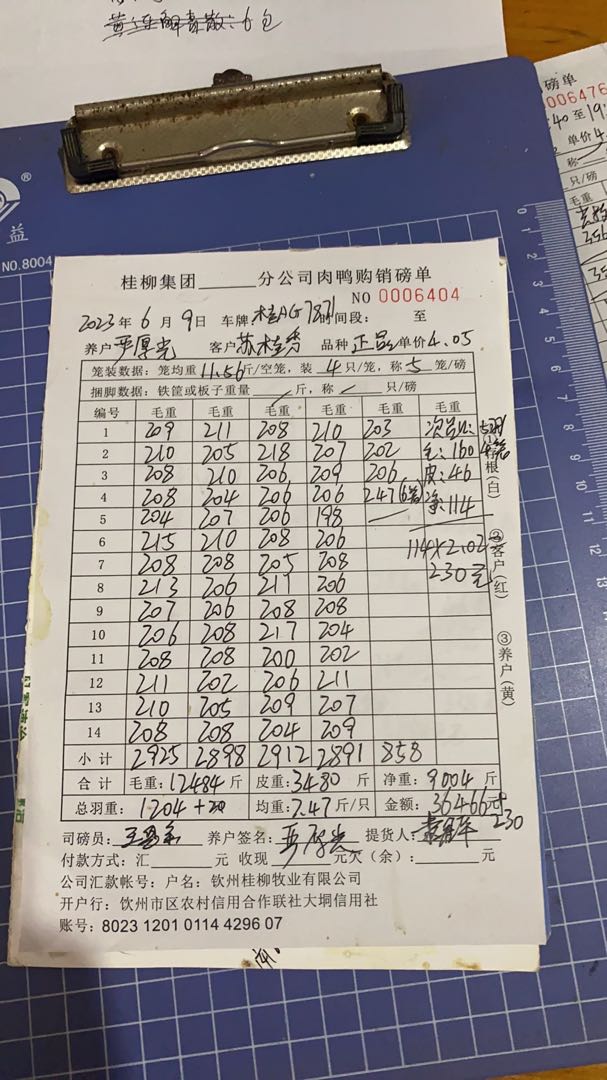 黄连解毒散：6包
益
®
NO.8004
磅单
0006476
单价4.
只/磅
毛重
桂柳集团______分公司肉鸭购销磅单
NO 0006404
2023年6月9日 车牌：桂AG7871时间段： 至
养户 严厚光 客户 苏桂秀 品种 正品 单价4.05
笼装数据：笼均重11.56斤/空笼，装4只/笼，称5笼/磅
捆脚数据：铁筐或板子重量／斤，称／只/磅
编号 毛重 毛重 毛重 毛重 毛重 毛重
1 209 211 208 210 203 次品：
2 210 205 218 207 202 毛：160 4笼
3 208 210 206 209 206 皮：46
4 208 204 206 206 247(6笼) 净：114
5 204 207 206 198 —
6 215 210 208 206 114×2.02=
7 208 208 205 208 230元
8 213 206 211 206
9 207 206 208 208
10 206 208 217 204
11 208 208 200 202
12 211 202 206 211
13 210 205 209 207
14 208 208 204 209
小计 2925 2898 2912 2891 858
合计 毛重：12484斤 皮重：3480斤 净重：9004斤
总羽重：1204+20 均重：7.47斤/只 金额：36466元+230
司磅员： 养户签名：严厚光 提货人：
付款方式：汇______元 收现______元欠（余）：______元
公司汇款帐号：户名：钦州桂柳牧业有限公司
开户行：钦州市区农村信用合作联社大垌信用社
账号：8023 1201 0114 4296 07
存根(白)
②客户(红)
③养户(黄)